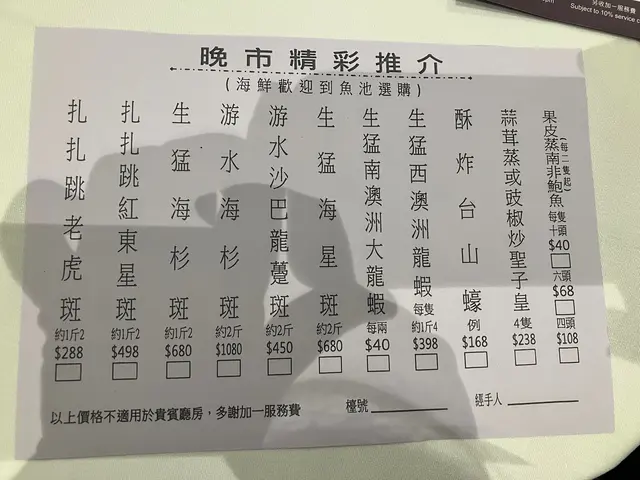 另收加一服務費
Subject to 10% service c
pm
晚市精彩推介
(海鮮歡迎到魚池選購)
果皮蒸南非鮑魚(每二隻起)
每隻
十頭
$40
六頭
$68
四頭
$108
蒜茸蒸或豉椒炒聖子皇
4隻
$238
酥炸台山蠔
例
$168
生猛西澳洲龍蝦
每隻
約1斤4
$398
生猛南澳洲大龍蝦
每兩
$40
生猛海星斑
約2斤
$680
游水沙巴龍躉斑
約2斤
$450
游水海杉斑
約2斤
$1080
生猛海杉斑
約1斤2
$680
扎扎跳紅東星斑
約1斤2
$498
扎扎跳老虎斑
約1斤2
$288
以上價格不適用於貴賓廳房，多謝加一服務費
檯號
經手人